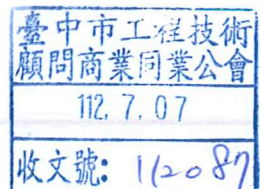 臺中市工程技術
顧問商業同業公會
112.7.07
收文號: 112087